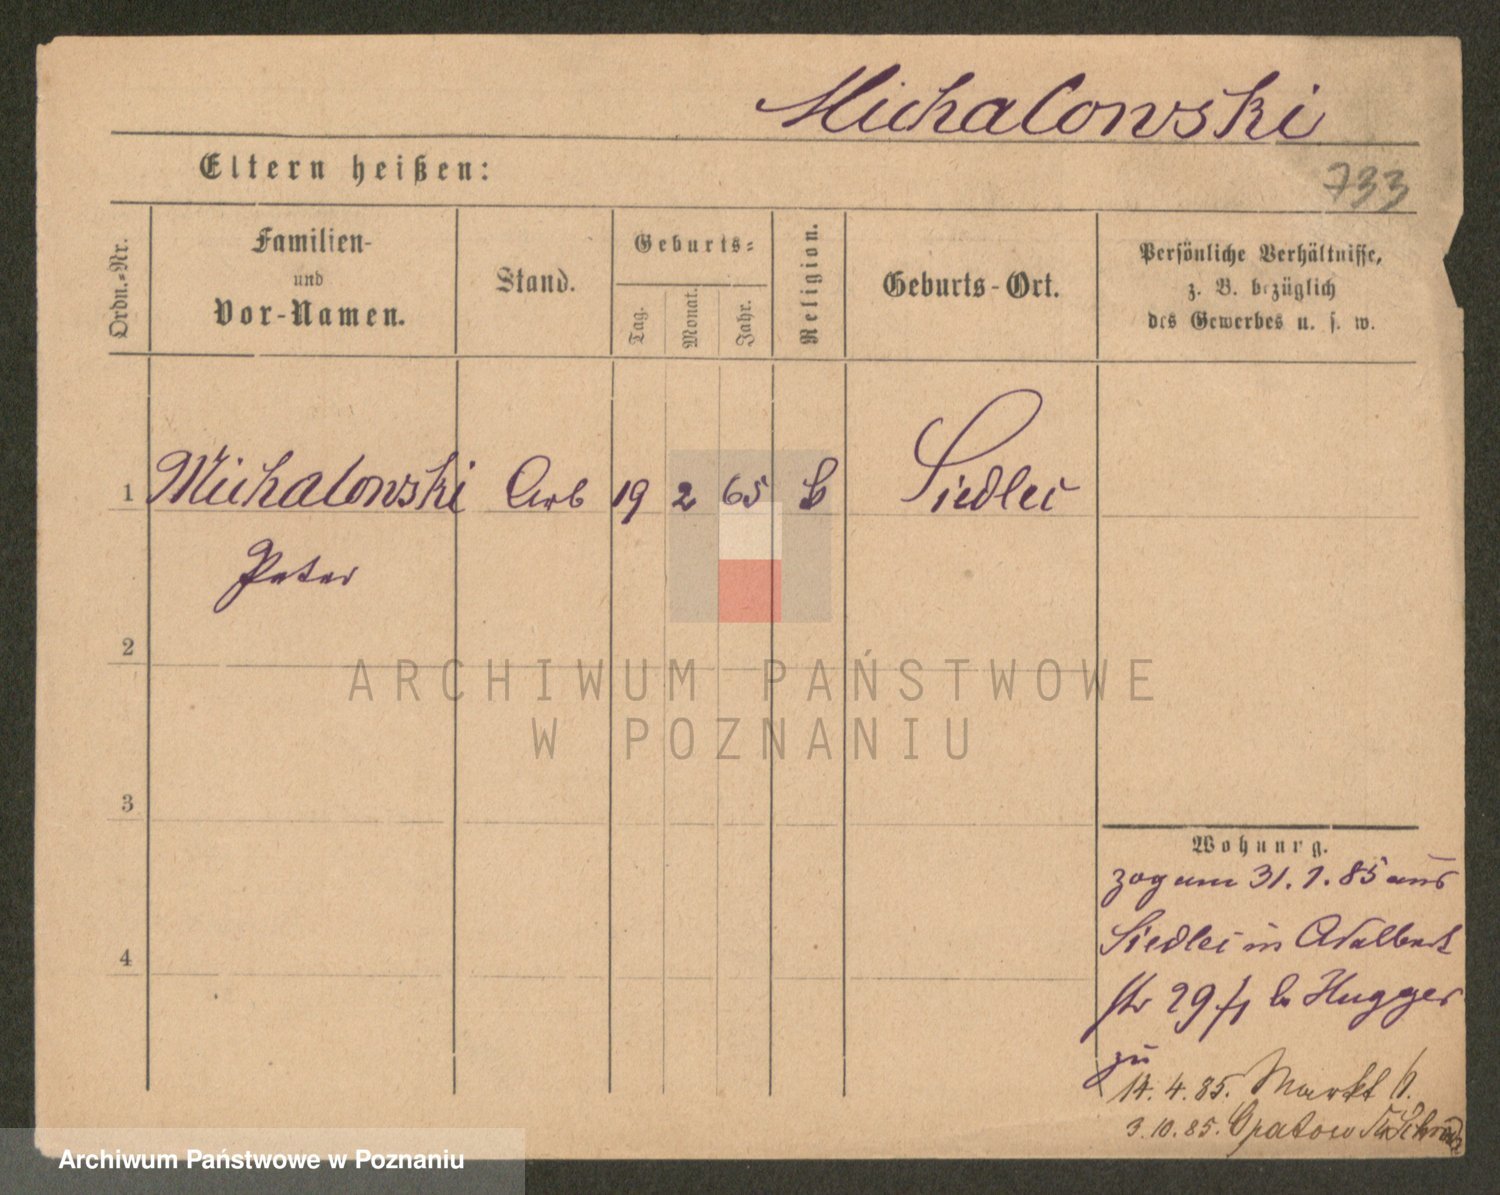 Michalowski
Eltern heißen:
733
Ordn.-Nr.
Familien-
und
Vor-Namen.
Stand.
Geburts-
Tag.
Monat.
Jahr.
Religion.
Geburts-Ort.
Persönliche Verhältnisse,
z. B. bezüglich
des Gewerbes u. s. w.
1 Michalowski Arb 19 2 65 Siedlec
Peter
2
ARCHIWUM PAŃSTWOWE
W POZNANIU
3
4
Wohnung.
zog am 31. 1. 85 aus
Siedlec in Adalbert
str 29 b Hugger
zu
14. 4. 85. Markt
3. 10. 85. Opatow
Archiwum Państwowe w Poznaniu